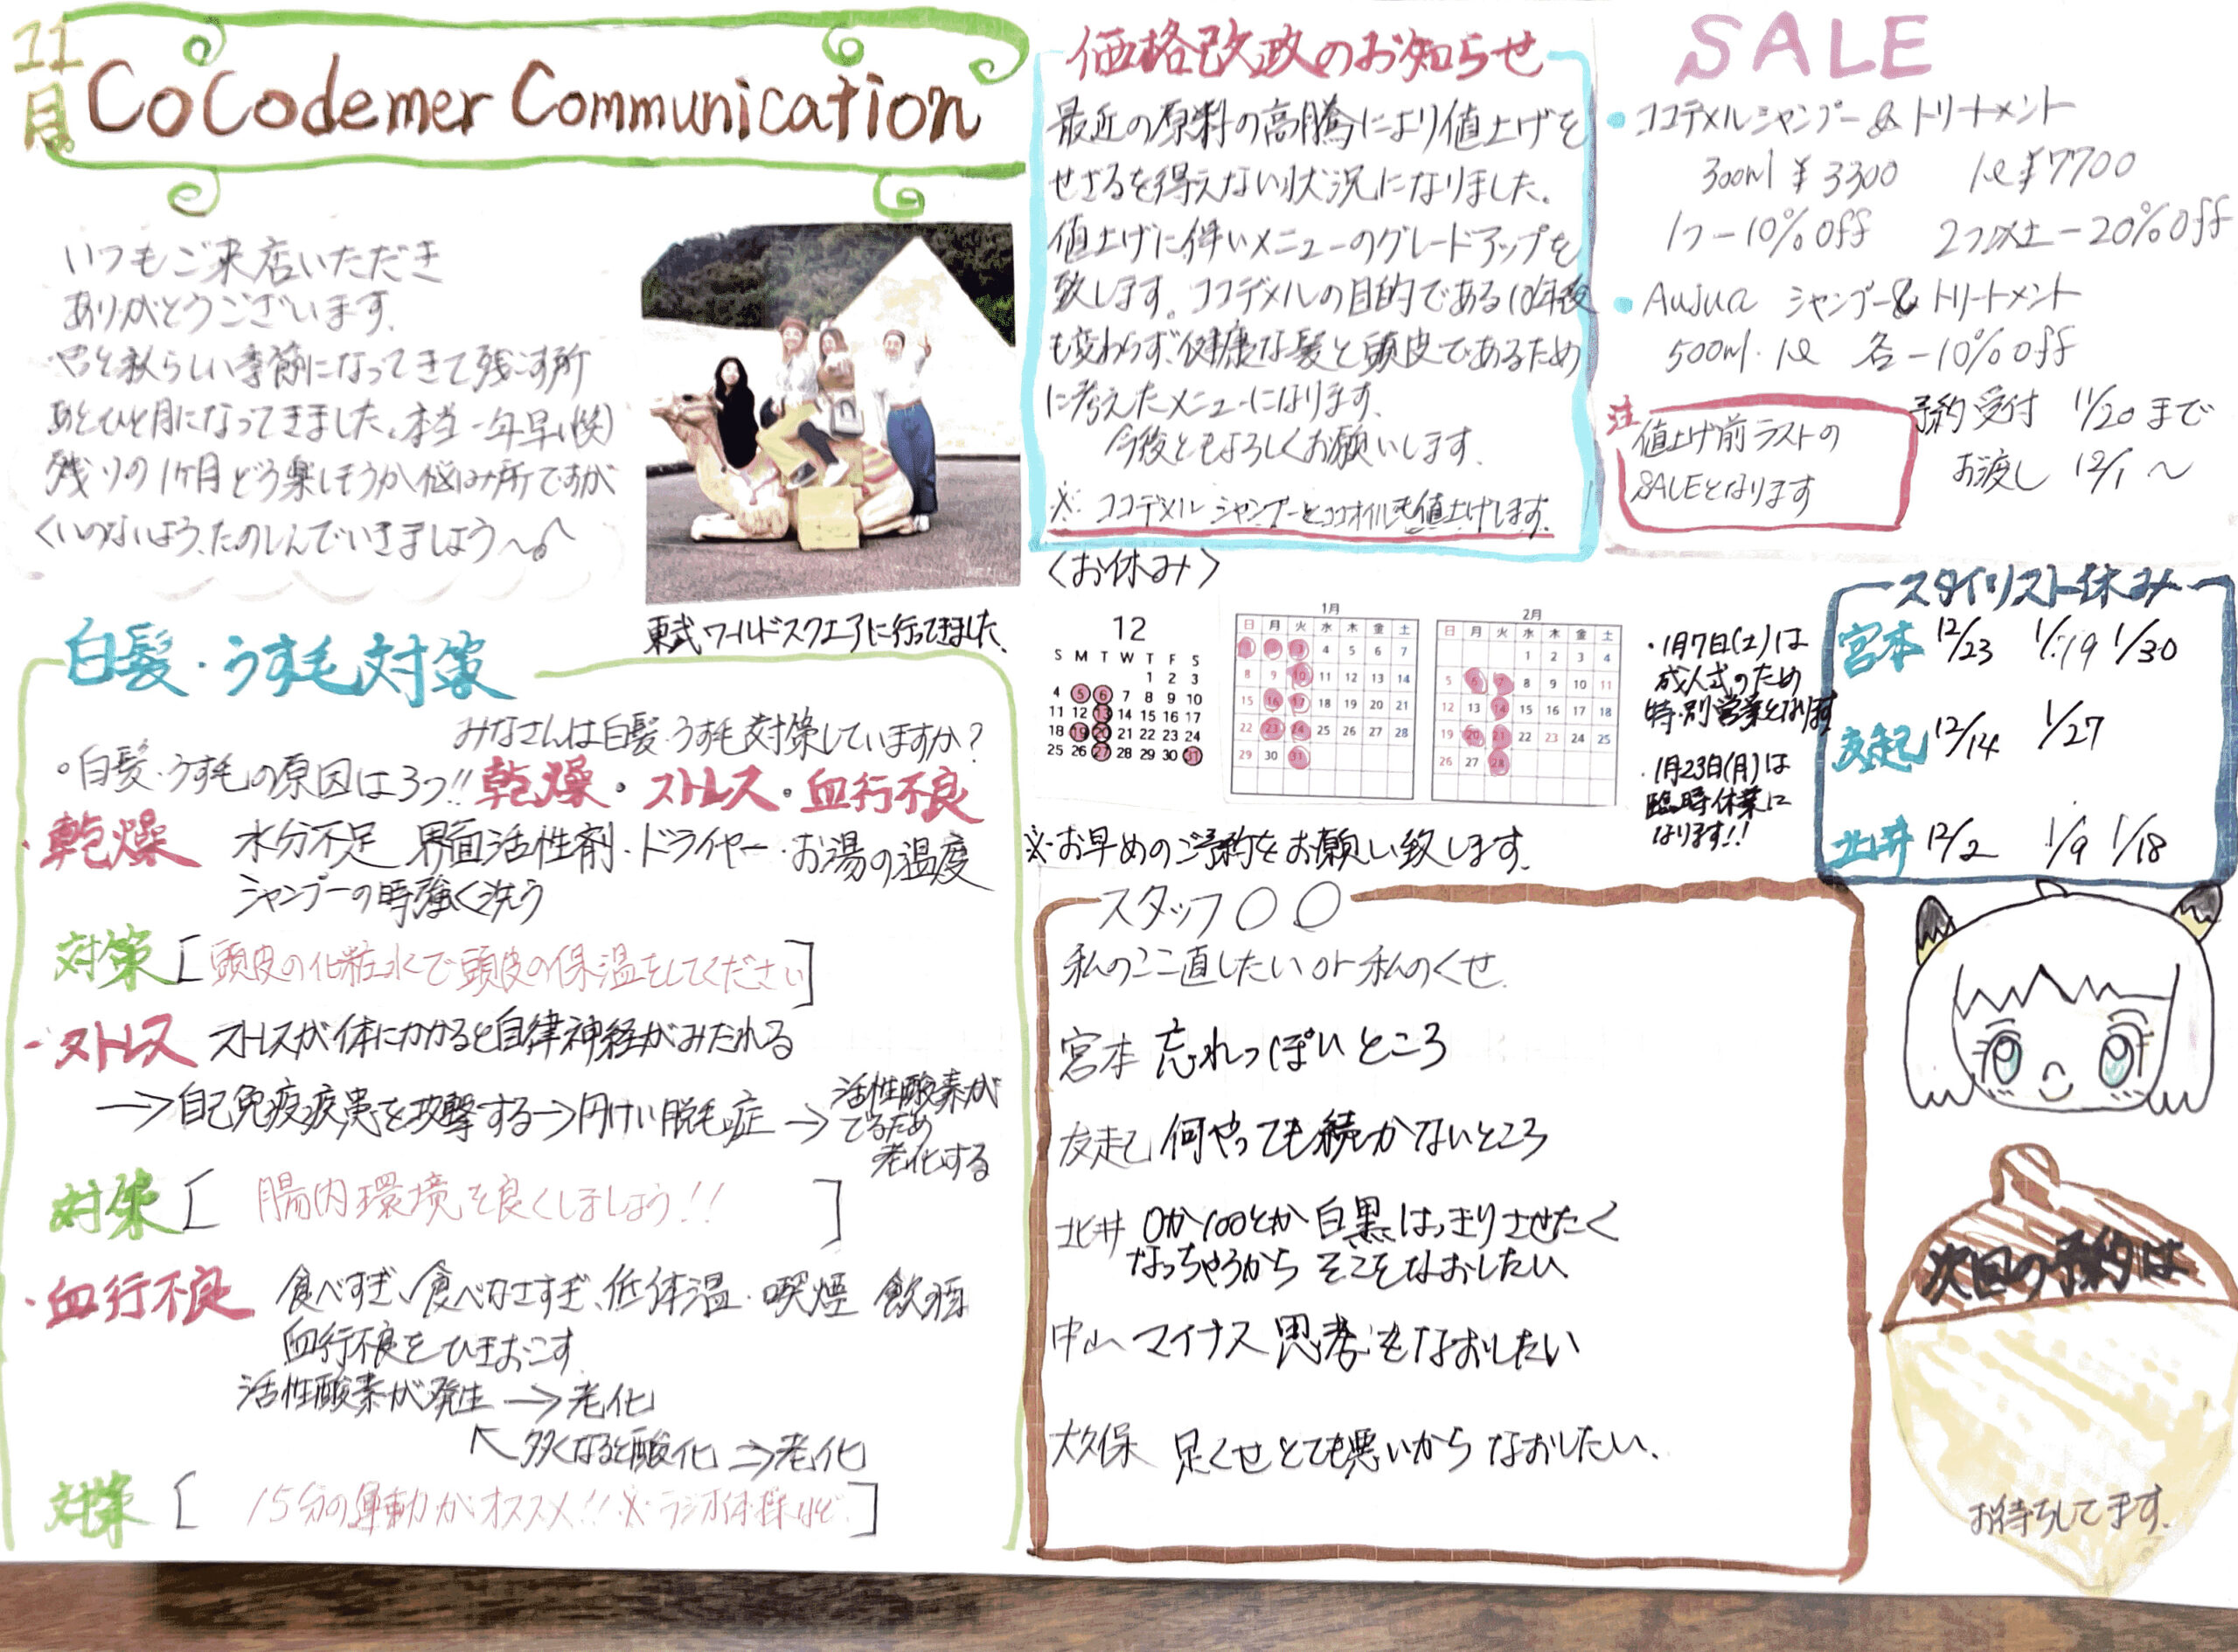 11月
CoCodemer Communication
いつもご来店いただき
ありがとうございます。
やっと秋らしい季節になってきて残す所
あとひと月になってきました。本当一年早い(笑)
残りの1ヶ月どう楽しもうか悩み所ですが
くいのないよう、たのしんでいきましょう〜
東武ワールドスクエアに行ってきました。
白髪・うす毛対策
みなさんは白髪・うす毛対策していますか?
。白髪・うす毛の原因は3つ!! 乾燥・ストレス・血行不良
・乾燥 水分不足 界面活性剤・ドライヤー・お湯の温度
シャンプーの時強く洗う
対策 [頭皮の化粧水で頭皮の保湿をしてください]
・ストレス ストレスが体にかかると自律神経がみだれる
→自己免疫疾患を攻撃する→円けい脱毛症→活性酸素が
でるため
老化する
対策 [腸内環境を良くしましょう!!]
・血行不良 食べすぎ、食べなさすぎ、低体温・喫煙 飲酒
血行不良をひきおこす
活性酸素が発生→老化
↖多くなると酸化→老化
対策 [15分の運動がオススメ!!※ラジオ体操など]
価格改政のお知らせ
最近の原料の高騰により値上げを
せざるを得えない状況になりました。
値上げに伴いメニューのグレードアップを
致します。ココデメルの目的である10年後
も変わらず、健康な髪と頭皮であるため
に考えたメニューになります。
今後ともよろしくお願いします。
※ココデメルシャンプーとココオイルも値上げします。
SALE
・ココデメルシャンプー&トリートメント
300ml ¥3300 1ℓ¥7700
1つ−10%off 2つ以上−20%off
・Aujua シャンプー&トリートメント
500ml・1ℓ 各−10%off
予約受付 11/20まで
お渡し 12/1〜
注
値上げ前ラストの
SALEとなります
〈お休み〉
12
S M T W T F S
1 2 3
4 5 6 7 8 9 10
11 12 13 14 15 16 17
18 19 20 21 22 23 24
25 26 27 28 29 30 31
1月
日 月 火 水 木 金 土
1 2 3 4 5 6 7
8 9 10 11 12 13 14
15 16 17 18 19 20 21
22 23 24 25 26 27 28
29 30 31
2月
日 月 火 水 木 金 土
1 2 3 4
5 6 7 8 9 10 11
12 13 14 15 16 17 18
19 20 21 22 23 24 25
26 27 28
・1月7日(土)は
成人式のため
特別営業となります
・1月23日(月)は
臨時休業に
なります!!
※お早めのご予約をお願い致します。
スタイリスト休み
宮本 12/23 1/19 1/30
友起 12/14 1/27
北井 12/2 1/9 1/18
スタッフ〇〇
私のここ直したいor私のくせ
宮本 忘れっぽいところ
友起 何やっても続かないところ
北井 0か100とか白黒はっきりさせたく
なっちゃうからそこをなおしたい、
中山 マイナス思考をなおしたい
大久保 足くせとても悪いからなおしたい、
次回の予約は
お待ちしてます。